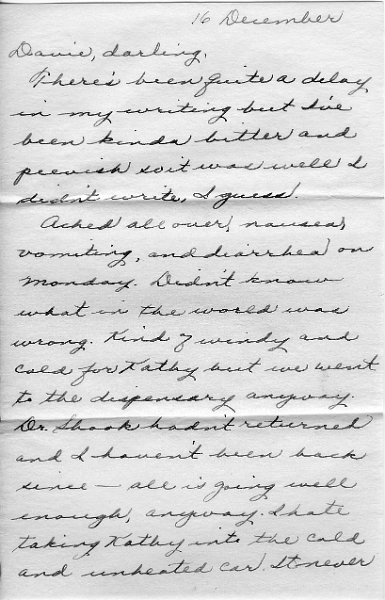 16 December
Davie, darling,
There's been quite a delay
in my writing but I've
been kinda bitter and
peevish so it was well I
didn't write, I guess.
Ached all over, nausea,
vomiting, and diarrhea on
Monday. Didn't know
what in the world was
wrong. Kind of windy and
cold for Kathy but we went
to the dispensary anyway.
Dr. Shook hadn't returned
and I haven't been back
since — all is going well
enough, anyway. I hate
taking Kathy into the cold
and unheated car. It never